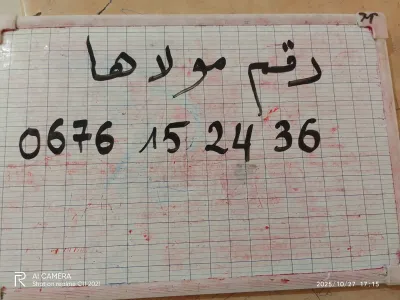 رقم مولاها
0676 15 24 36
AI CAMERA
Shot on realme C11 2021
2025/10/27 17:15